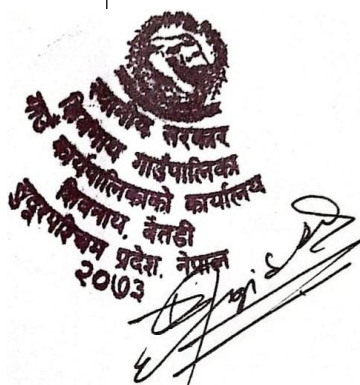 स्थानीय सरकार
शिवनाथ गाउँपालिका
कार्यपालिकाको कार्यालय
शिवनाथ, बैतडी
सुदूरपश्चिम प्रदेश, नेपाल
२०७३